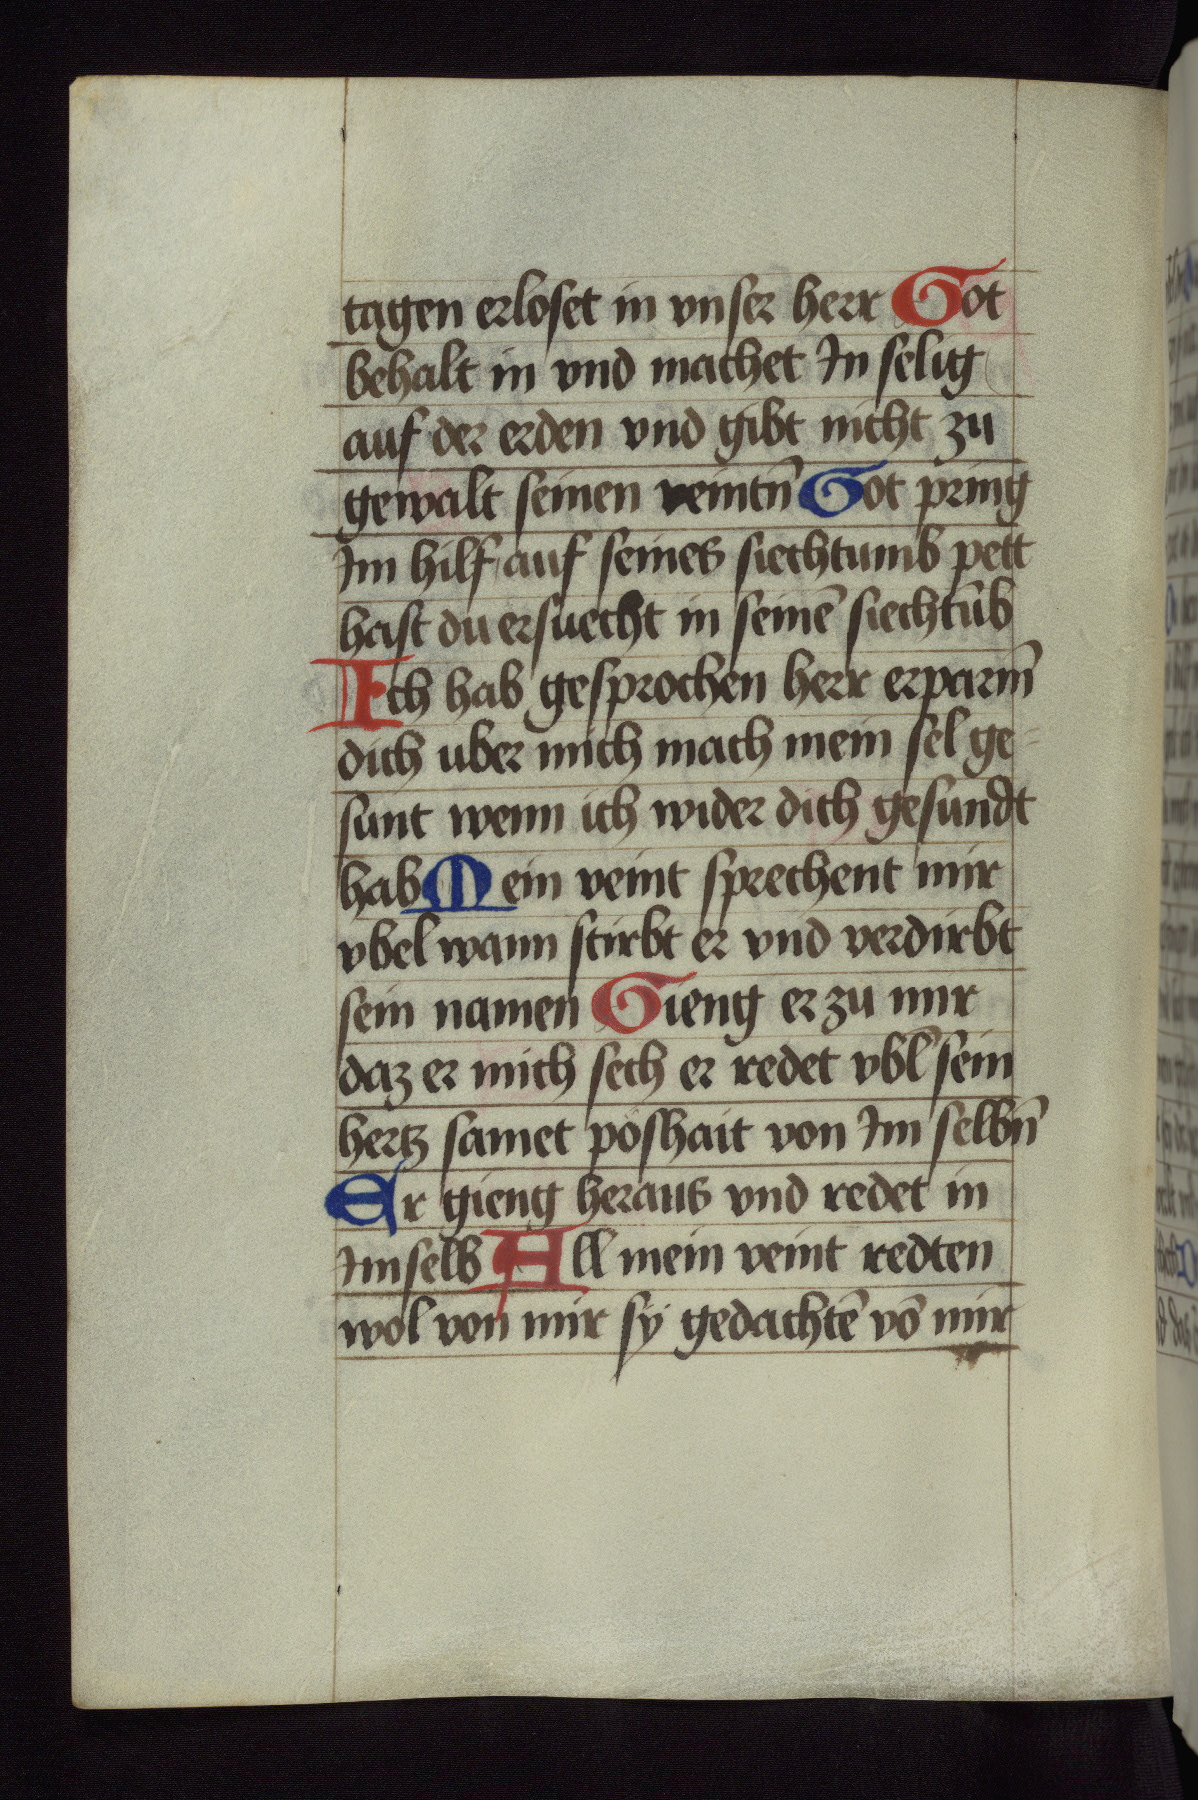 tagen erloset in vnser herr Got
behalt in vnd machet In selig
auf der erden vnd gibt nicht zu
gewalt seinen veintn̄ Got pring
Im hilf auf seines siechtumb pett
hast du ersuecht in seinē siechtūb
Ich hab gesprochen herr erparm̄
dich uber mich mach mein sel ge-
sunt wenn ich wider dich gesundt
hab Mein veint sprechent mir
vbel wann stirbt er vnd verdirbt
sein namen Gieng er zu mir
daz er mich sech er redet vbl̄ sein
hertz samet poshait von Im selbn̄
Er gieng heraus vnd redet in
Im selb All mein veint redten
wol von mir sy gedachtē vō mir